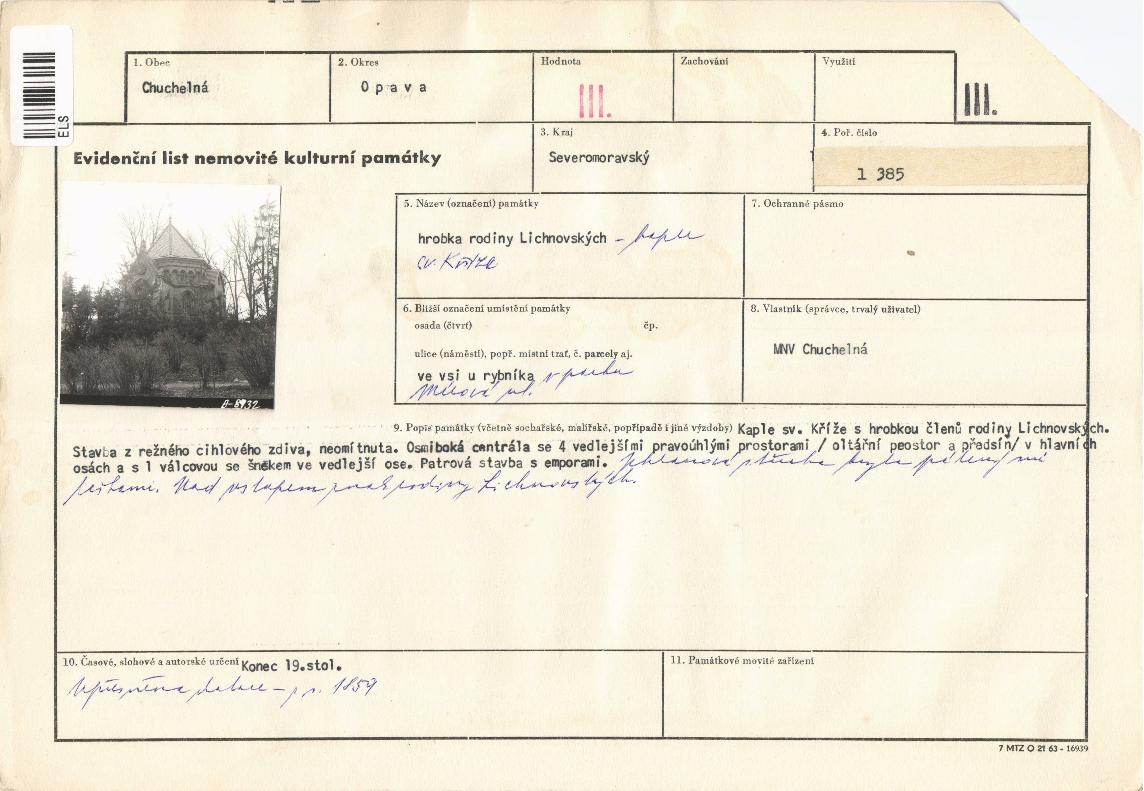 ELS
1. Obec
Chuchelná
2. Okres
Opava
Hodnota
III.
Zachování
Využití
III.
Evidenční list nemovité kulturní památky
3. Kraj
Severomoravský
4. Poř. číslo
1 385
B-8932
5. Název (označení) památky
hrobka rodiny Lichnovských – kaple
sv. Kříže
7. Ochranné pásmo
6. Bližší označení umístění památky
osada (čtvrť) čp.
ulice (náměstí), popř. místní trať, č. parcely aj.
ve vsi u rybníka v parku
Mírová ul.
8. Vlastník (správce, trvalý uživatel)
MNV Chuchelná
9. Popis památky (včetně sochařské, malířské, popřípadě i jiné výzdoby) Kaple sv. Kříže s hrobkou členů rodiny Lichnovských.
Stavba z režného cihlového zdiva, neomítnuta. Osmiboká centrála se 4 vedlejšími pravoúhlými prostorami / oltářní peostor a předsíň/ v hlavních
osách a s 1 válcovou se šnekem ve vedlejší ose. Patrová stavba s emporami. střecha
Nad vstupem znak rodiny Lichnovských.
10. Časové, slohové a autorské určení Konec 19.stol.
– 1859
11. Památkové movité zařízení
7 MTZ O 21 63 - 16939